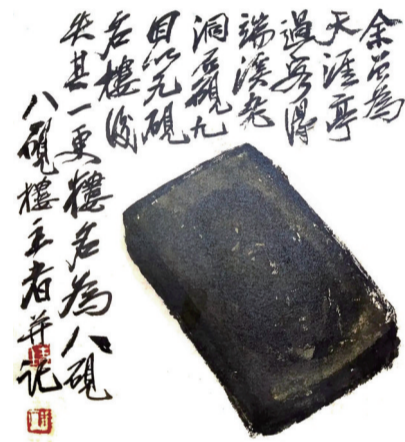 余為
天涯亭
過客得
端溪老
洞石硯九
因以九硯
名樓後
失其一更樓名為八硯
八硯樓主者并記